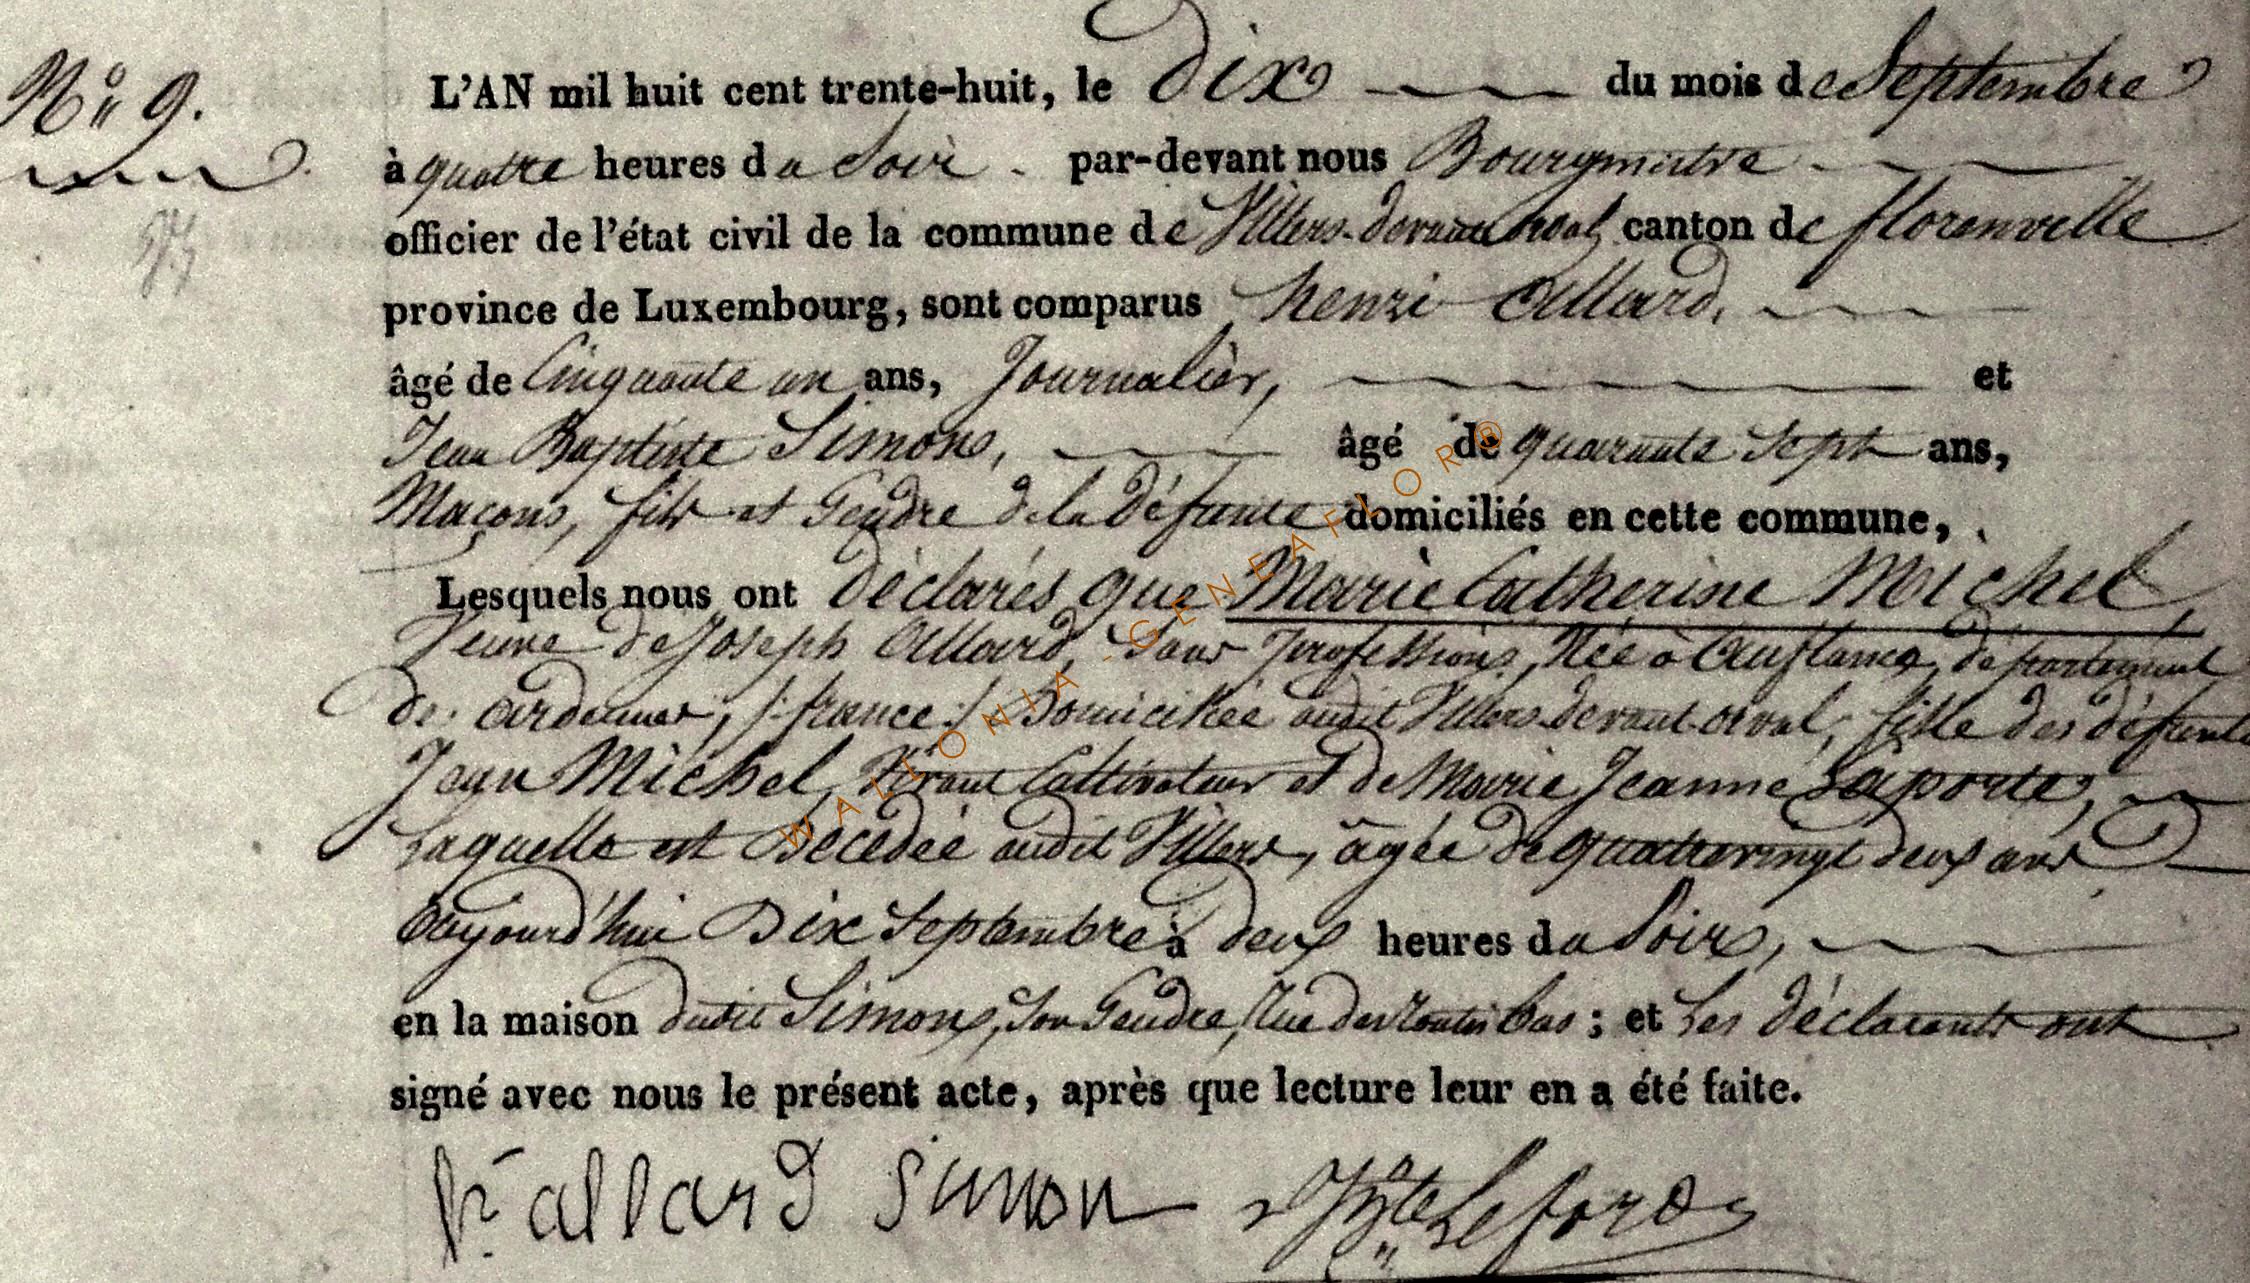 N° 9. L'AN mil huit cent trente-huit, le Dix du mois de Septembre
à quatre heures du Soir. par-devant nous Bourgmestre
officier de l'état civil de la commune de Villers-devant-orval, canton de florenville
province de Luxembourg, sont comparus henri Allard,
âgé de Cinquante un ans, Journalier, et
Jean Baptiste Simon, âgé de quarante Sept ans,
Maçon, fils et Gendre de la Défunte domiciliés en cette commune,
Lesquels nous ont Déclarés que Marie Catherine Michel,
Veuve de Joseph Allard, Sans profession, Née à Auflance, département
des ardennes, /:france:/ Domiciliée audit Villers-devant-orval, fille des défunts
Jean Michel, Vivant Cultivateur et de Marie Jeanne Laporte,
Laquelle est Décédée audit Villers, âgée de quatrevingt deux ans
Aujourd'hui Dix Septembre à deux heures du Soir,
en la maison dudit Simon, Son Gendre, Rue bas ; et Les déclarants ont
signé avec nous le présent acte, après que lecture leur en a été faite.
hri allard Simon
WALLONIA-GENEAFLOR®